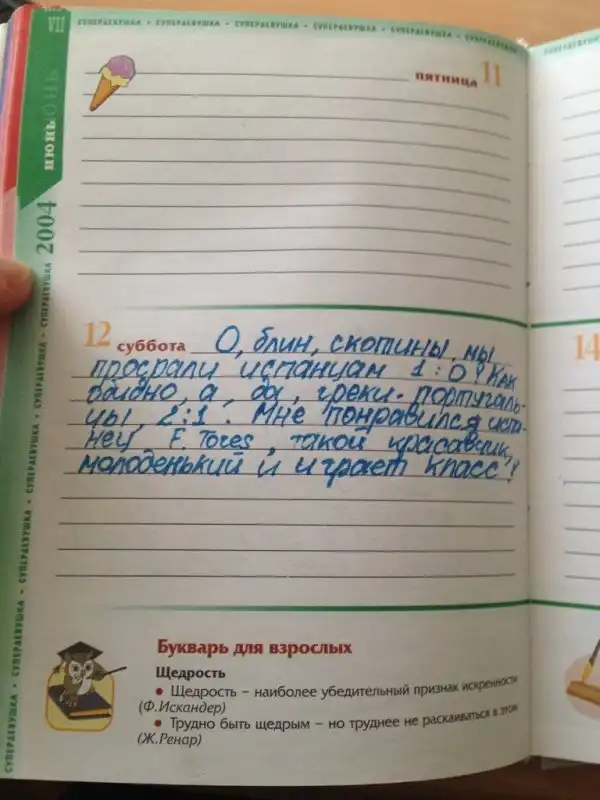 VII
СУПЕРДЕВУШКА • СУПЕРДЕВУШКА • СУПЕРДЕВУШКА • СУПЕРДЕВУШКА • СУПЕРДЕВУШКА • СУПЕРДЕВУШКА
июнь
2004
СУПЕРДЕВУШКА • СУПЕРДЕВУШКА • СУПЕРДЕВУШКА • СУПЕРДЕВУШКА • СУПЕРДЕВУШКА
пятница 11
12 суббота О, блин, скотины, мы
просрали испанцам 1:0! Как
обидно, а, да, греки - португаль-
цы, 2:1. Мне понравился испа-
нец F. Tores, такой красавчик,
молоденький и играет класс!
14
Букварь для взрослых
Щедрость
• Щедрость – наиболее убедительный признак искренности
(Ф.Искандер)
• Трудно быть щедрым – но труднее не раскаиваться в этом
(Ж.Ренар)